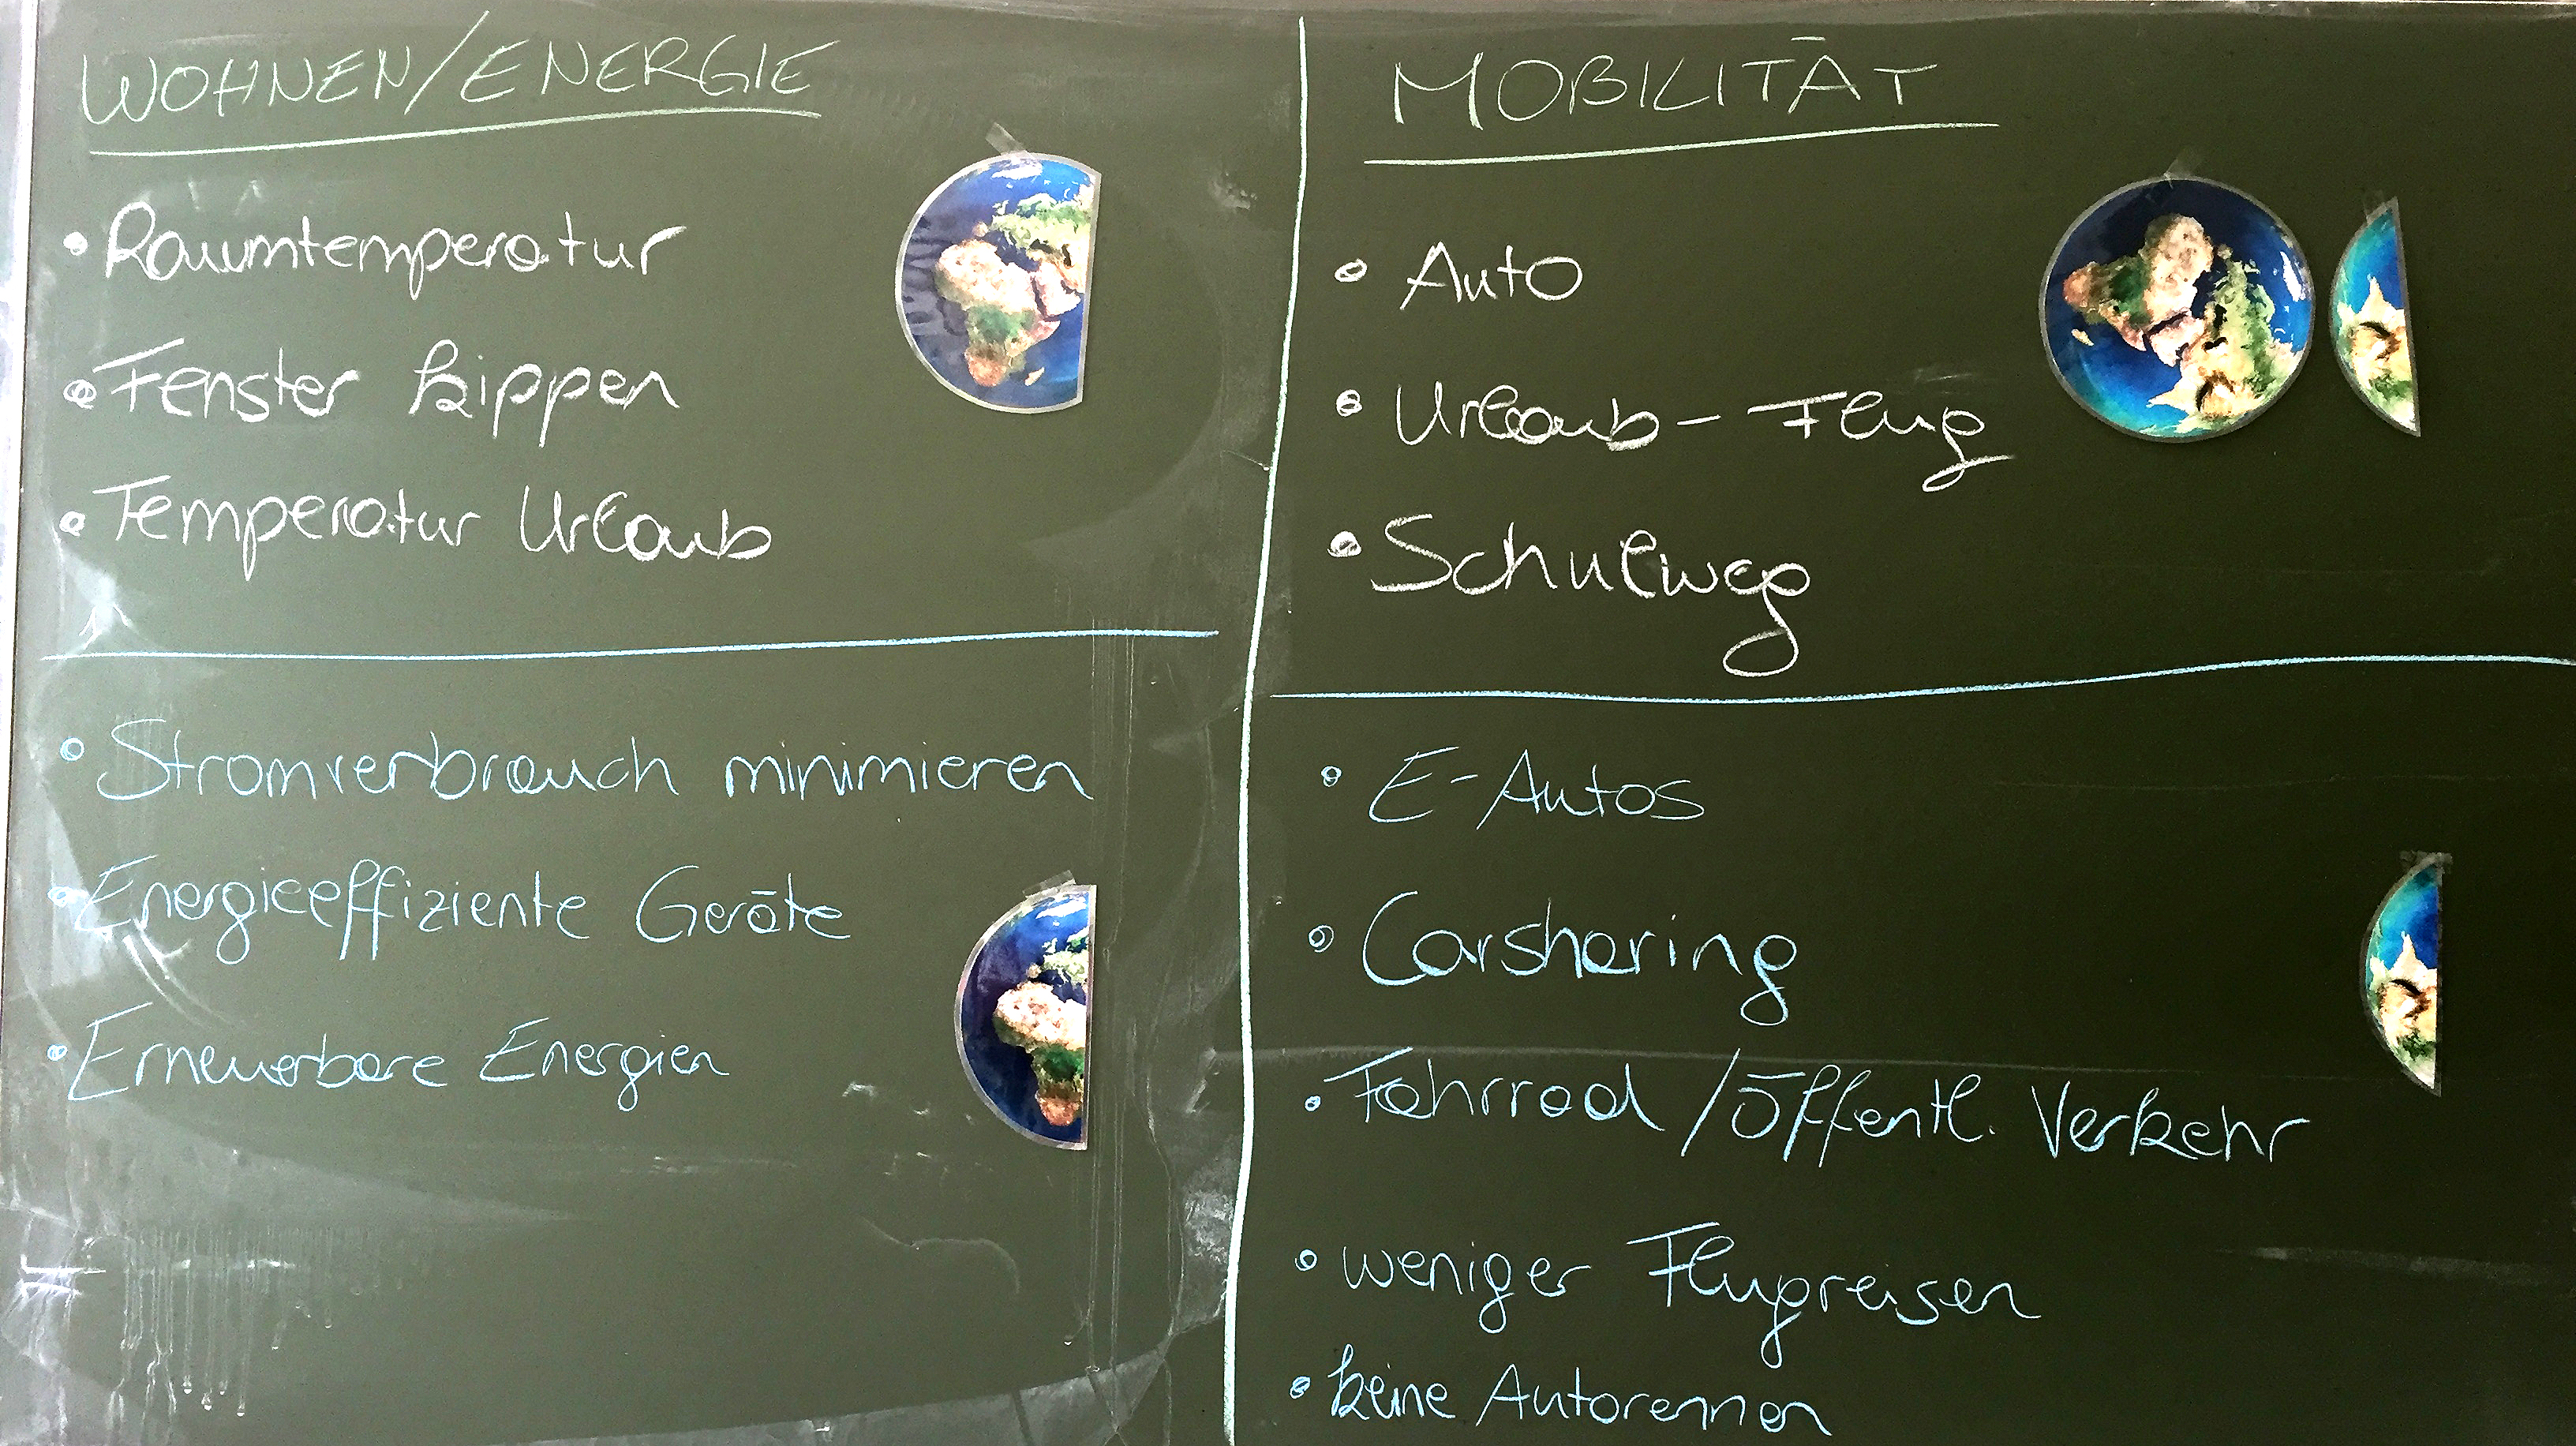 WOHNEN/ENERGIE
• Raumtemperatur
• Fenster kippen
• Temperatur Urlaub
• Stromverbrauch minimieren
• Energieeffiziente Geräte
• Erneuerbare Energien
MOBILITÄT
• Auto
• Urlaub - Flug
• Schulweg
• E-Autos
• Carsharing
• Fahrrad / öffentl. Verkehr
• weniger Flugreisen
• keine Autorennen